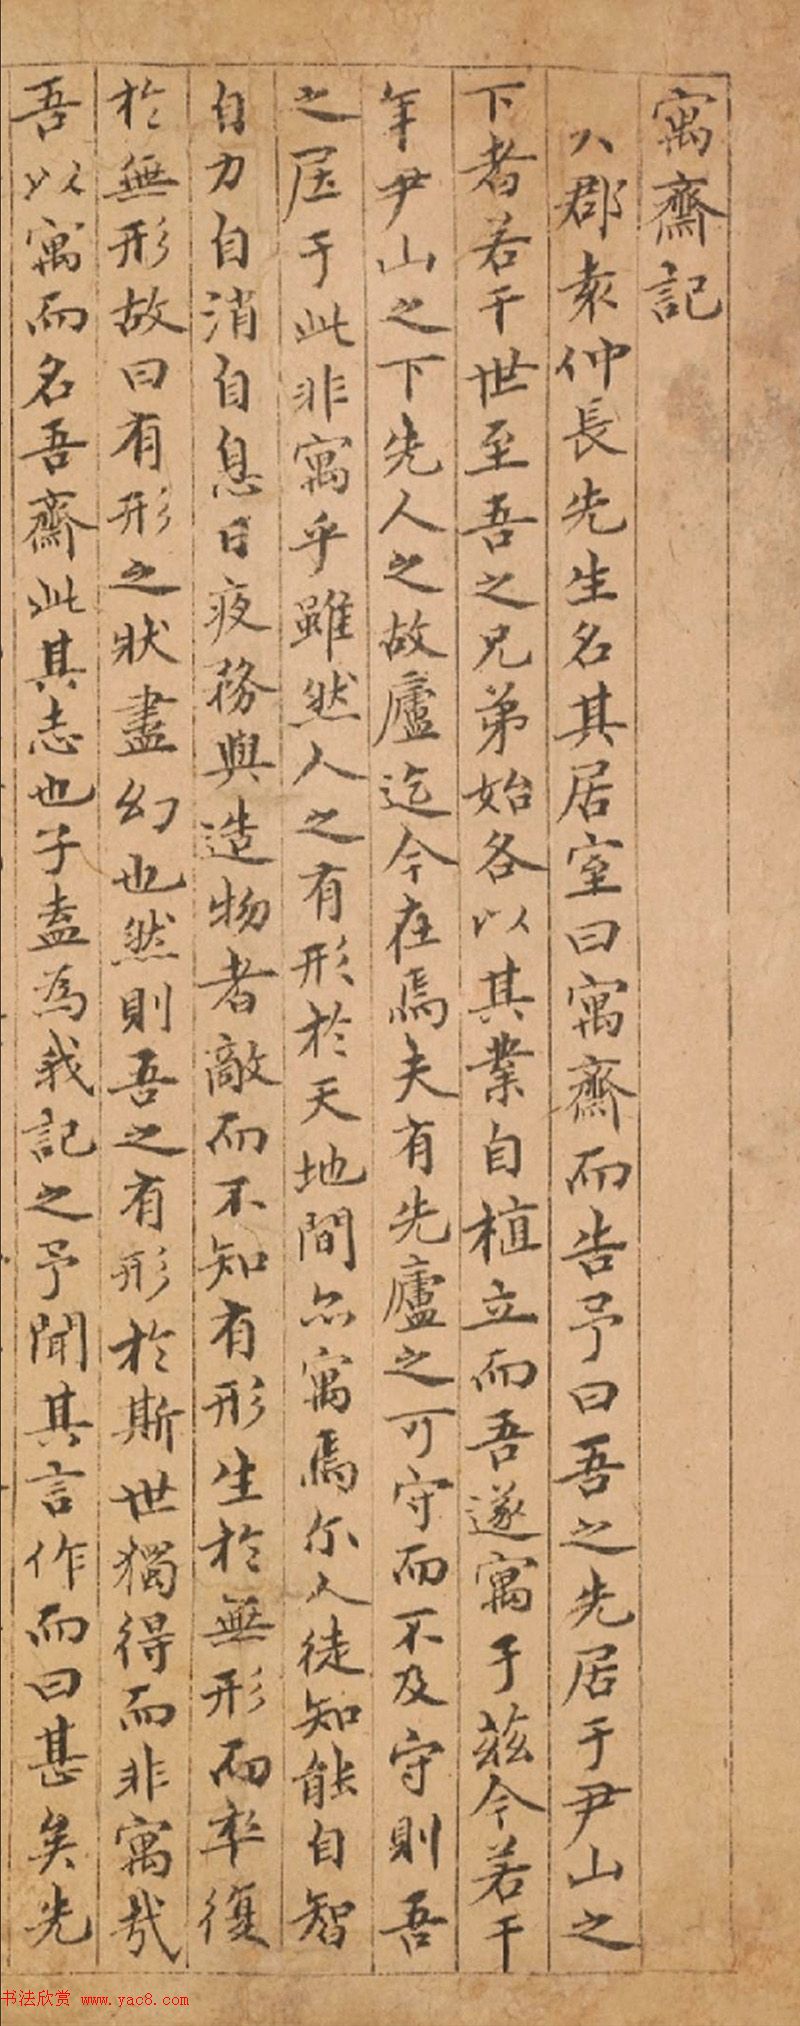 寓齋記
郡袁仲長先生名其居室曰寓齋而告予曰吾之先居于尹山之
下者若干世至吾之兄弟始各以其業自植立而吾遂寓于茲今若干
年尹山之下先人之故廬迄今在焉夫有先廬之可守而不及守則吾
之居于此非寓乎雖然人之有形於天地間亦寓焉尓人徒知能自智
自力自消自息日夜務與造物者敵而不知有形生於無形而卒復
於無形故曰有形之狀盡幻也然則吾之有形於斯世獨得而非寓哉
吾以寓而名吾齋此其志也子盍為我記之予聞其言作而曰甚矣先
书法欣赏 www.yac8.com